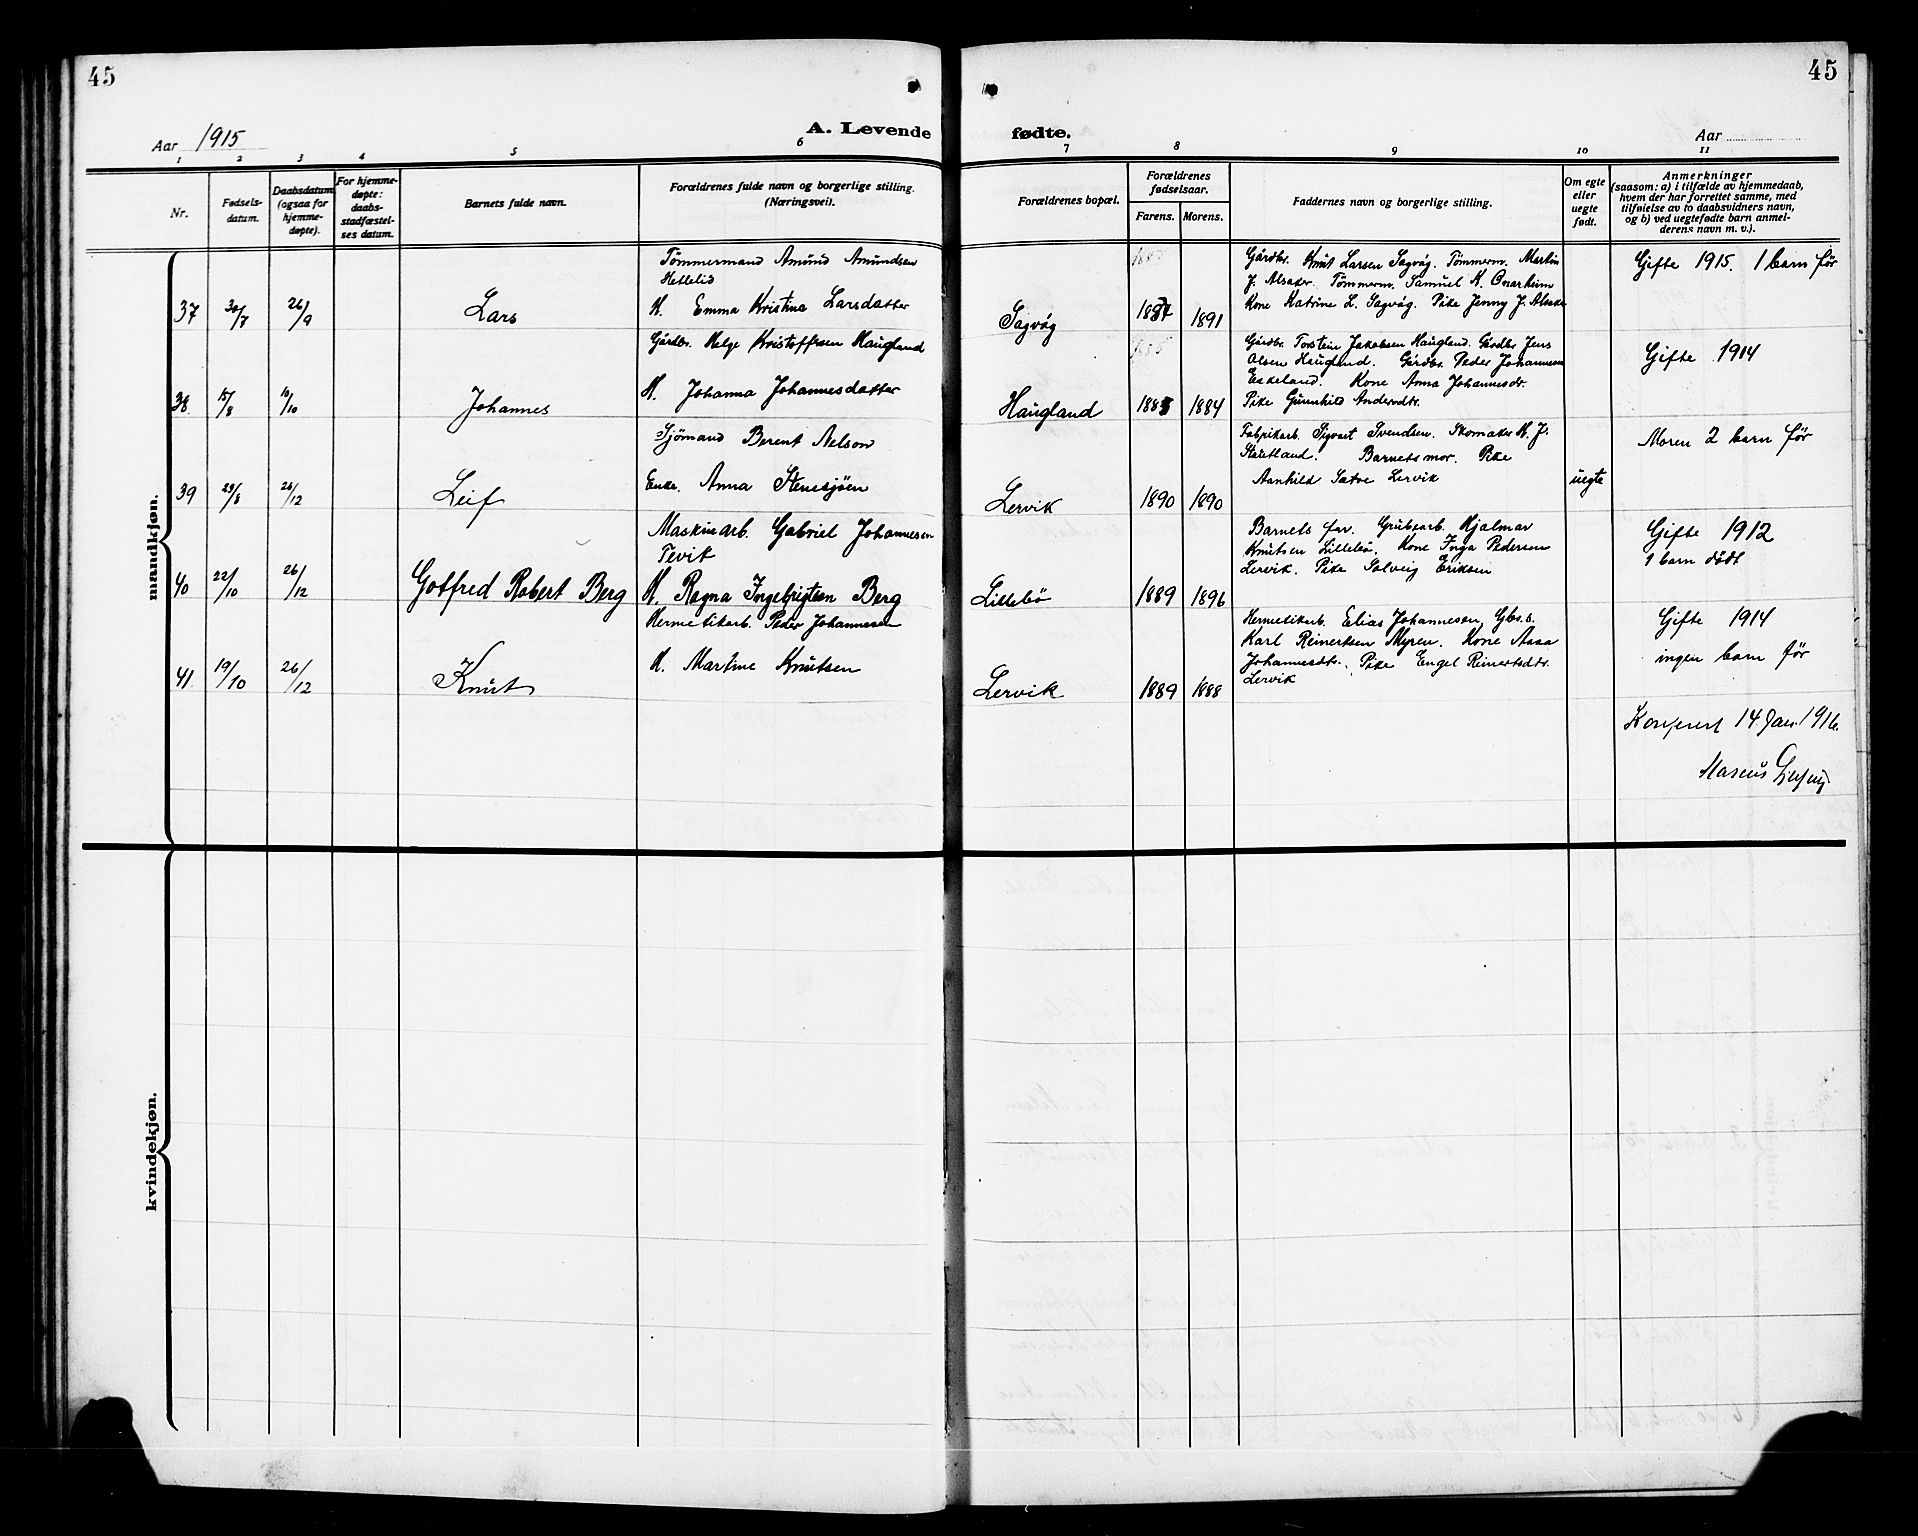 45
45
Aar 1915
A. Levende
fødte.
Aar
1 2 3 4 5 6 7 8 9 10 11
Nr.
Fødsels-
datum.
Daabsdatum
(ogsaa for
hjemme-
døpte).
For hjemme-
døpte:
daabs-
stadfæstel-
ses datum.
Barnets fulde navn.
Forældrenes fulde navn og borgerlige stilling.
(Næringsvei).
Forældrenes bopæl.
Forældrenes
fødselsaar.
Farens. Morens.
Faddernes navn og borgerlige stilling.
Om egte
eller
uegte
født.
Anmerkninger
(saasom: a) i tilfælde av hjemmedaab,
hvem der har forrettet samme, med
tilføielse av to daabsvidners navn,
og b) ved uegtefødte barn anmel-
derens navn m. v.).
mandkjøn.
37 30/7 26/9 Lars
Tömmermand Amund Amundsen
Hettelid
K. Emma Kristine Larsdatter
Sagvåg
1887 1891
Gårdbr. Knut Larsen Sagvåg. Tömmerm. Martin
J. Alsaker. Tömmerm. Samuel K. Onarheim
Kone Katrine L. Sagvåg. Pike Jenny J. Alsaker
Gifte 1915. 1 barn før
38 15/8 10/10 Johannes
Gårdbr. Helge Kristoffersen Haugland
K. Johanna Johannesdatter
Haugland
1885 1884
Gårdbr. Torstein Jakobsen Haugland. Gårdbr Jens
Olsen Haugland. Gårdbr. Peder Johannesen
Eskeland. Kone Anna Johannesdr.
Pike Gunnhild Andersdtr.
Gifte 1914
39 29/8 26/12 Leif
Sjömand Berent Nelson
Enke. Anna Stensjöen
Lervik
1890 1890
Fabrikarb. Sigvart Svendsen. Skomaker K. J.
Barnets mor. Pike
Lervik
uegte
Moren 2 barn før
40 22/10 26/12 Gotfred Robert Berg
Maskinarb. Gabriel Johannesen
Tevik
K. Ragna Ingebrigtsen Berg
Lillebö
1889 1896
Barnets far. Grubearb. Hjalmar
Knutsen Lillebö. Kone Inga Pedersen
Lervik. Pike Solveig Eriksen
Gifte 1912
1 barn dödt
41. 19/10 26/12 Knut
Hermetikarb. Peder Johannesen
K. Martine Knutsen
Lervik
1889 1888
Hermetikarb. Elias Johannesen, Gbr. s.
Karl Reinertsen Myren. Kone Aasa
Johannesdtr. Pike Engel Reinertsdtr.
Lervik
Gifte 1914
ingen barn før
Konferert 14 Jan. 1916.
Marcus
kvindekjøn.